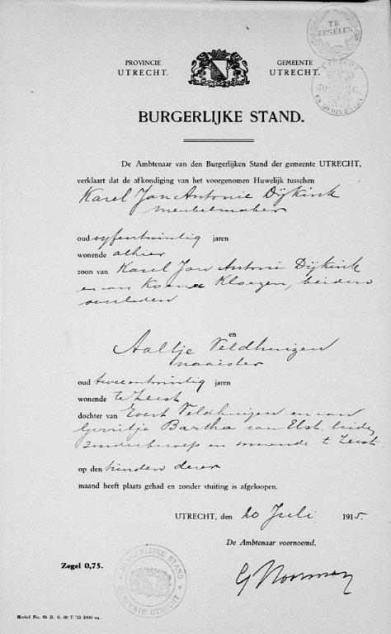 TE
ZEGELEN
PROVINCIE
UTRECHT.
GEMEENTE
UTRECHT.
BURGERLIJKE STAND.
De Ambtenaar van den Burgerlijken Stand der gemeente UTRECHT,
verklaart dat de afkondiging van het voorgenomen Huwelijk tusschen
Karel Jan Antonie Dijkink
meubelmaker
oud vyfentwintig jaren
wonende alhier
zoon van Karel Jan Antonie Dijkink
en van Kloezen, beiden
overleden
en
Aaltje Veldhuizen
naaister
oud tweeentwintig jaren
wonende te Zeist
dochter van Evert Veldhuizen en van
Gerritje Bartha van Elst beiden
zonder beroep en wonende te Zeist
op den dezer
maand heeft plaats gehad en zonder stuiting is afgeloopen.
UTRECHT, den 20 Juli 1915.
De Ambtenaar voornoemd.
Zegel 0,75.
BURGERLIJKE STAND
UTRECHT
Model No.